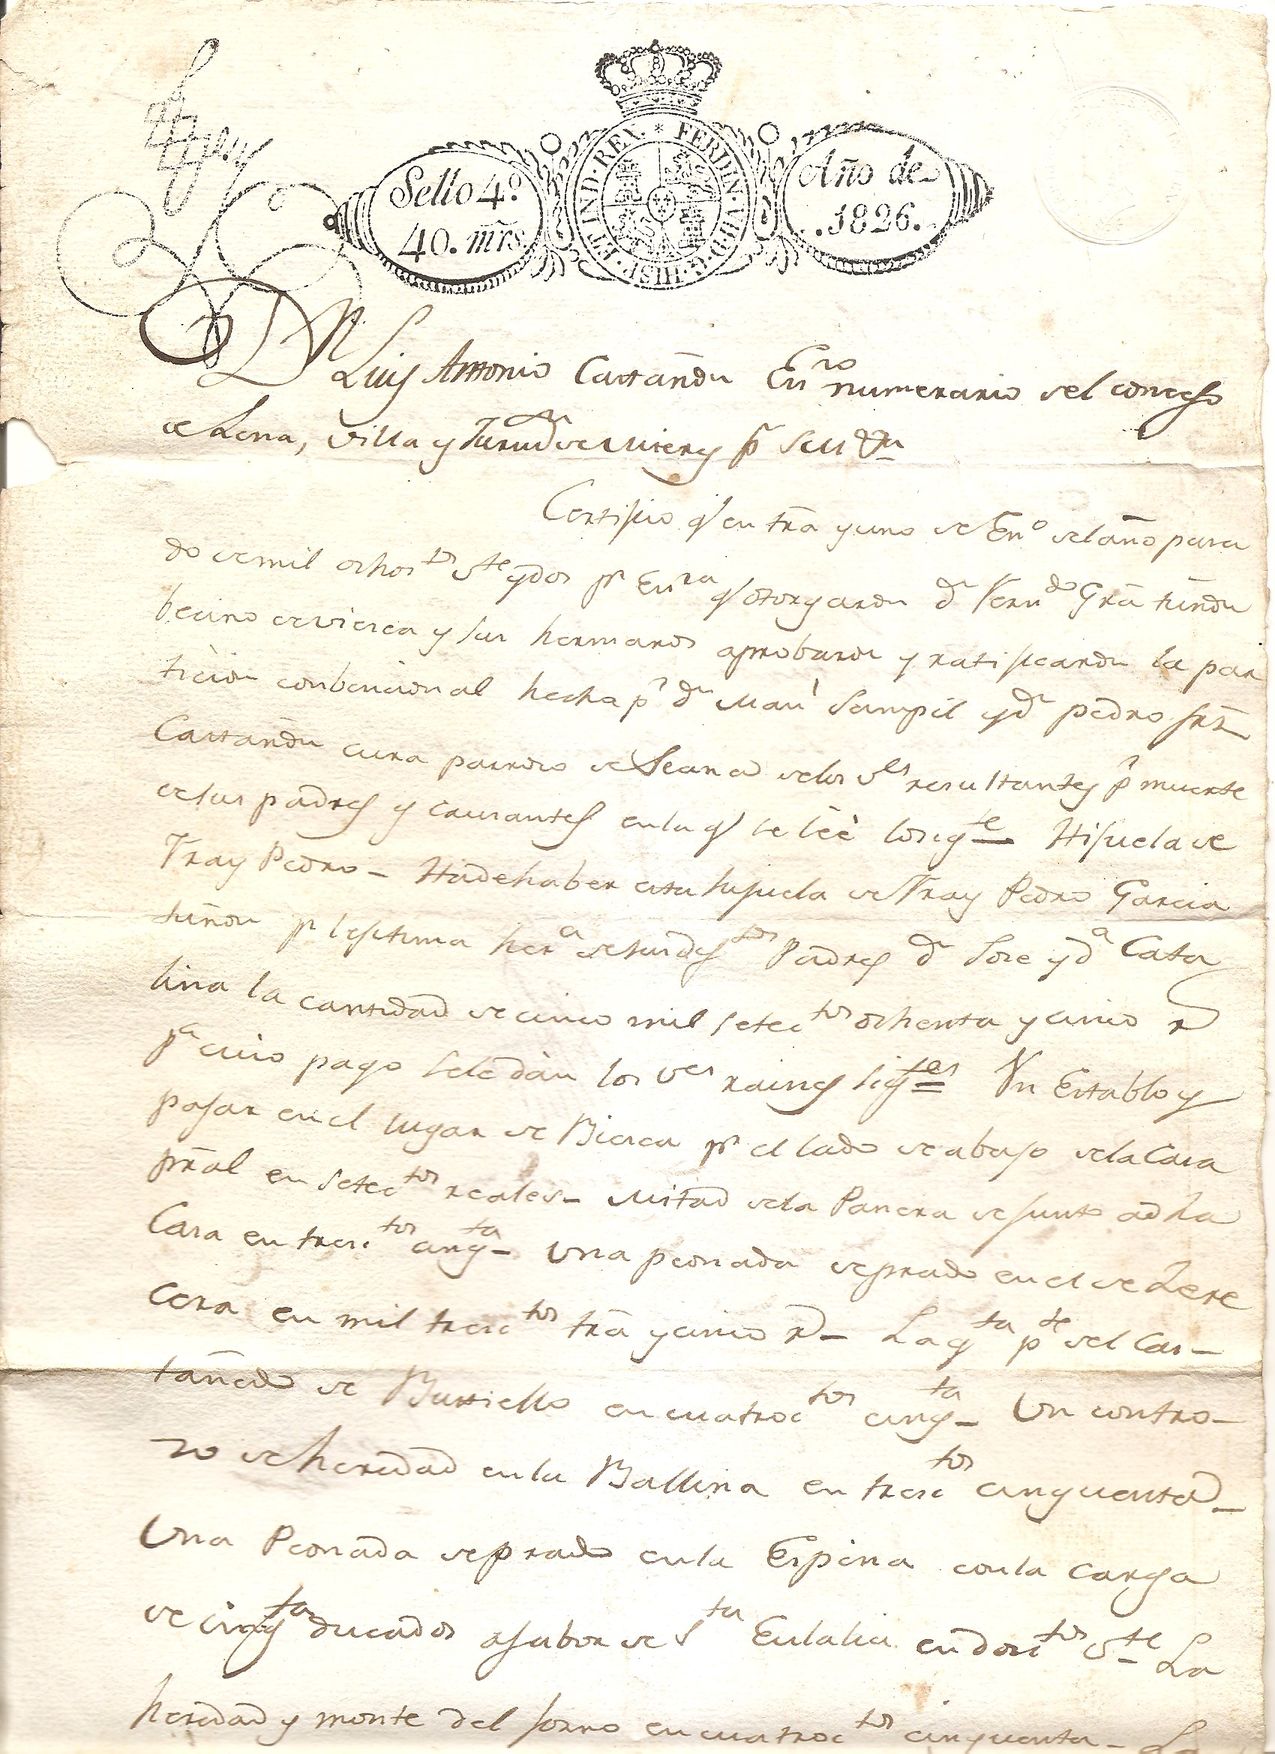 Sello 4.º
40. mrs.
FERDIN. VII. D. G. HISP. ET IND. REX
Año de
.1826.
Dn Luis Antonio Castañon Esno numerario del concejo
de Lena, Villa y Jurisdn de Mieres pr S.M.
Certifico qe en trª y uno de Enº del año pasa
do de mil ochoztos vte y dos pr Esra qe otorgaron dn Ferndo Grª tuñon
becino de vicrea y sus hermanos aprobaron y ratificaron la par
ticion conbencional hecha pr dn Manl Sampil y dn pedro frz
Castañon cura parroco de Seana de los vs resultantes pr muerte
de sus padres y causantes en la qe se léé lo sigte Hijuela de
Fray Pedro - Ha de haber esta hijuela de Fray Pedro Garcia
tuñon pr lejitima hera de sus dos Padres dn Jose y dª Cata
lina la cantidad de cinco mil setectos ochenta y cinco rs
pª cuio pago se le dàn los vs raices sigtes Un Establo y
pajar en el lugar de Bicrea pr el lado de abajo de la Casa
pral en setectos reales - Mitad de la Panera de junto a dha
Casa en tresctos cinqta - Una peonada de prado en el de Lere
cera en mil tresctos trª y cinco rs - La qta pte del Cas-
tañedo de Bustiello en cuatroctos cinqta - Un contro-
zo de heredad en la Ballina en tresctos cinquenta -
Una Peonada de prado en la Espina con la carga
de cinqta ducados a fabor de Sta Eulalia en dosctos vte La
heredad y monte del forno en cuatroctos cinquenta - La